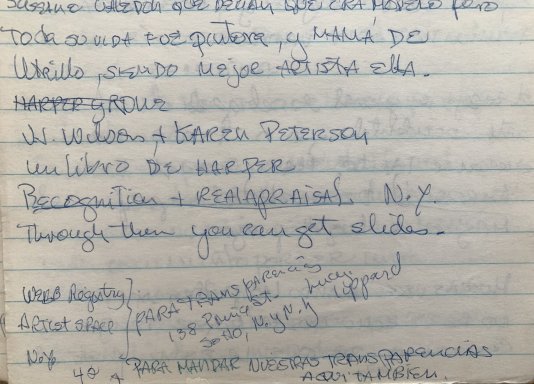 QUE DECIAN QUE ERA MODELO pero
TODA SU VIDA FUE pintora, y MAMÁ DE
Utrillo, SIENDO Mejor ARTISTA Ella.
HARPER y ROWE
J. Wilson + KAREN PETERSON
un libro DE HARPER
Recognition + REAlAPRAiSAl. N.Y.
Through them you can get slides.
WEBB Registry
ARTist SPACE
PARA TRANSPARENCIAS
138 Prince St. Lucy Lippard
SoHO, N.Y N.Y
PARA MANDAR NUESTRAS TRANSPARENCIAS
AQUI TAMBIEN.